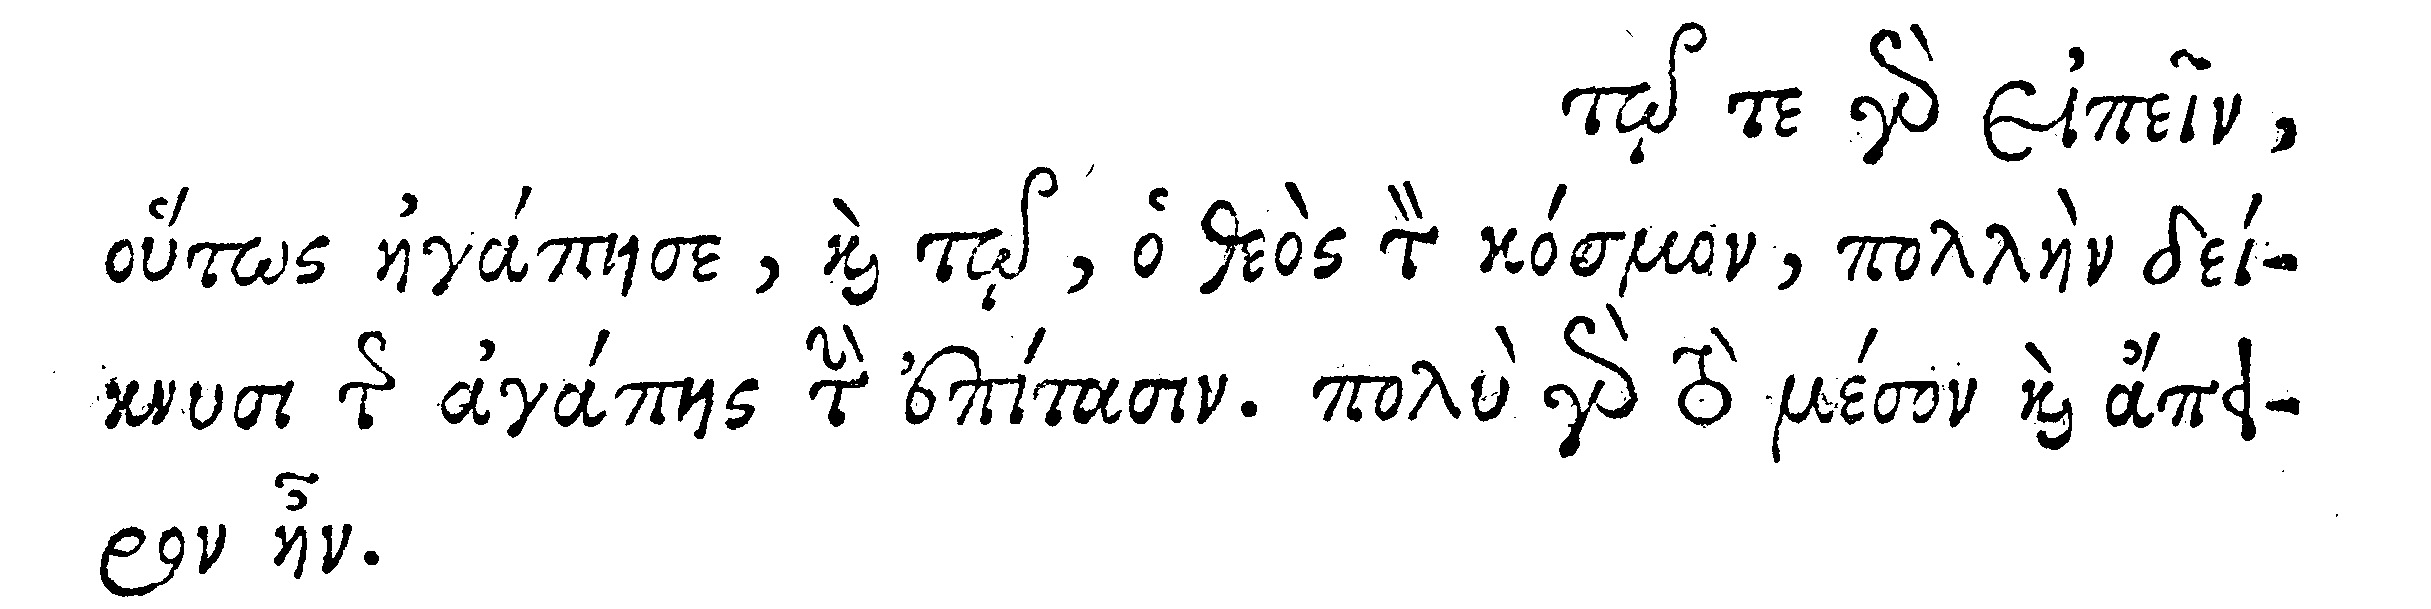 τῷ τε γὰρ εἰπεῖν,
οὕτως ἠγάπησε, καὶ τῷ, ὁ θεὸς τὸν κόσμον, πολλὴν δεί-
κνυσι τῆς ἀγάπης τὴν ἐπίτασιν. πολὺ γὰρ τὸ μέσον καὶ ἄπει-
ρον ἦν.